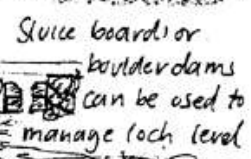 Sluice boards or
boulder dams
can be used to
manage loch level